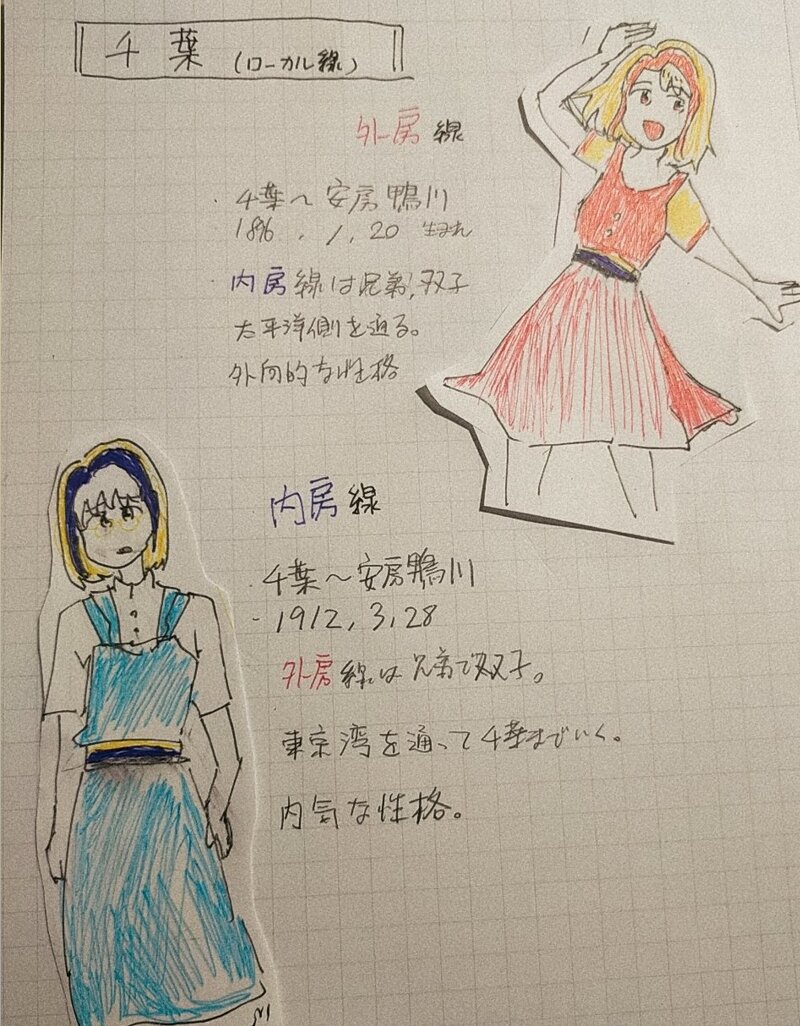 千葉 (ローカル線)
外房線
・千葉〜安房鴨川
1896.1.20 生まれ
・内房線は兄弟,双子
太平洋側を通る。
外向的な性格
内房線
・千葉〜安房鴨川
・1912,3,28
外房線は兄弟で双子。
東京湾を通って千葉までいく。
内気な性格。